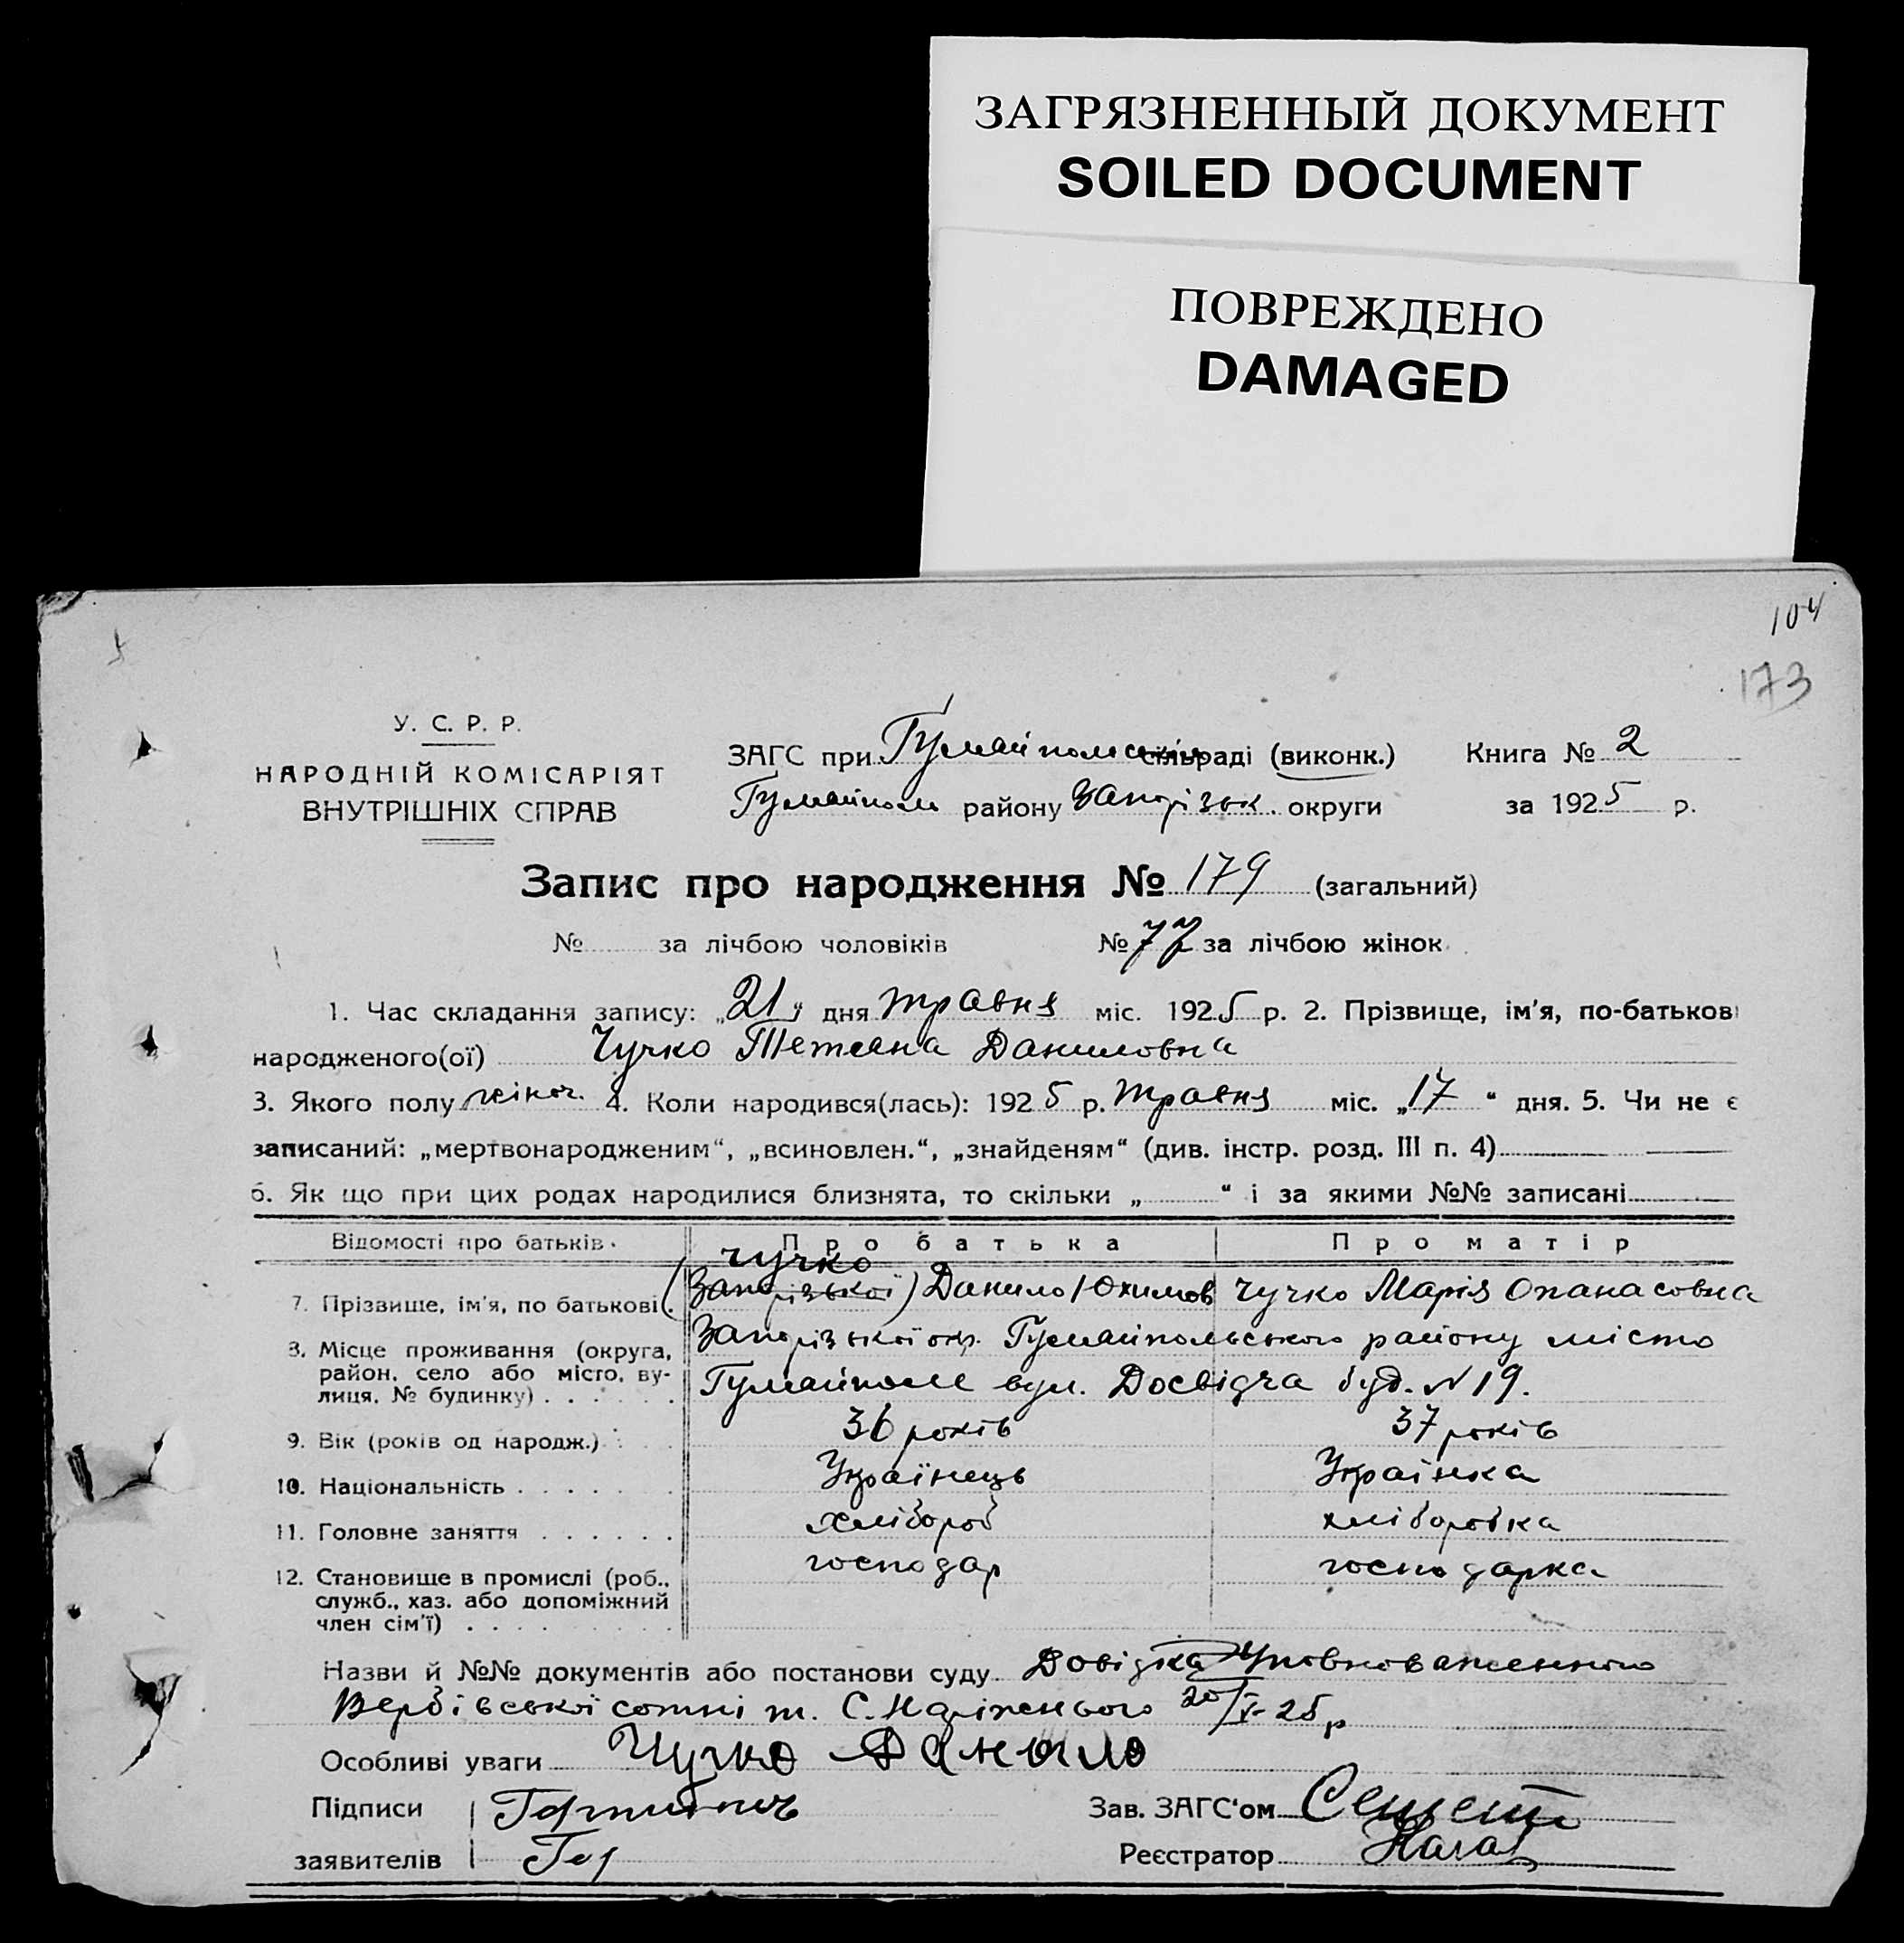 ЗАГРЯЗНЕННЫЙ ДОКУМЕНТ
SOILED DOCUMENT
ПОВРЕЖДЕНО
DAMAGED
104
173
У. С. Р. Р.
НАРОДНІЙ КОМІСАРІЯТ
ВНУТРІШНІХ СПРАВ
ЗАГС при Гуляйпольськ сільраді (виконк.) Книга № 2
Гуляйполь району Запорізьк. округи за 1925 р.
Запис про народження № 179 (загальний)
№ за лічбою чоловіків № 77 за лічбою жінок
1. Час складання запису: „21" дня травня міс. 1925 р. 2. Прізвище, ім'я, по-батькові
народженого(ої) Чучко Тетяна Даниловна
3. Якого полу жіноч. 4. Коли народився(лась): 1925 р. травня міс. „17" дня. 5. Чи не є
записаний: „мертвонародженим", „всиновлен.", „знайденям" (див. інстр. розд. III п. 4)
6. Як що при цих родах народилися близнята, то скільки „ " і за якими №№ записані
Відомості про батьків. Про батька Про матір
Чучко
7. Прізвище, ім'я, по батькові. (Запорізької) Данило Юхимов Чучко Марія Опанасовна
8. Місце проживання (округа, район, село або місто, ву-лиця, № будинку) Запорізької окр. Гуляйпольського району місто
Гуляйполе вул. Досвідча буд. № 19.
9. Вік (років од народж.) 36 років 37 років
10. Національність Українець Українка
11. Головне заняття хлібороб хліборобка
12. Становище в промислі (роб., господар господарка
служб., хаз. або допоміжний
член сім'ї)
Назви й №№ документів або постанови суду Довідка Уповноваженного
Вербівської сотні т. С. Наріжнього 20/V-25 р
Особливі уваги Чучко Данило
Підписи
заявителів
Зав. ЗАГС'ом
Реєстратор